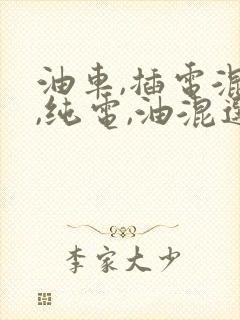 油車,插電混
,純電,油混選
李家大少